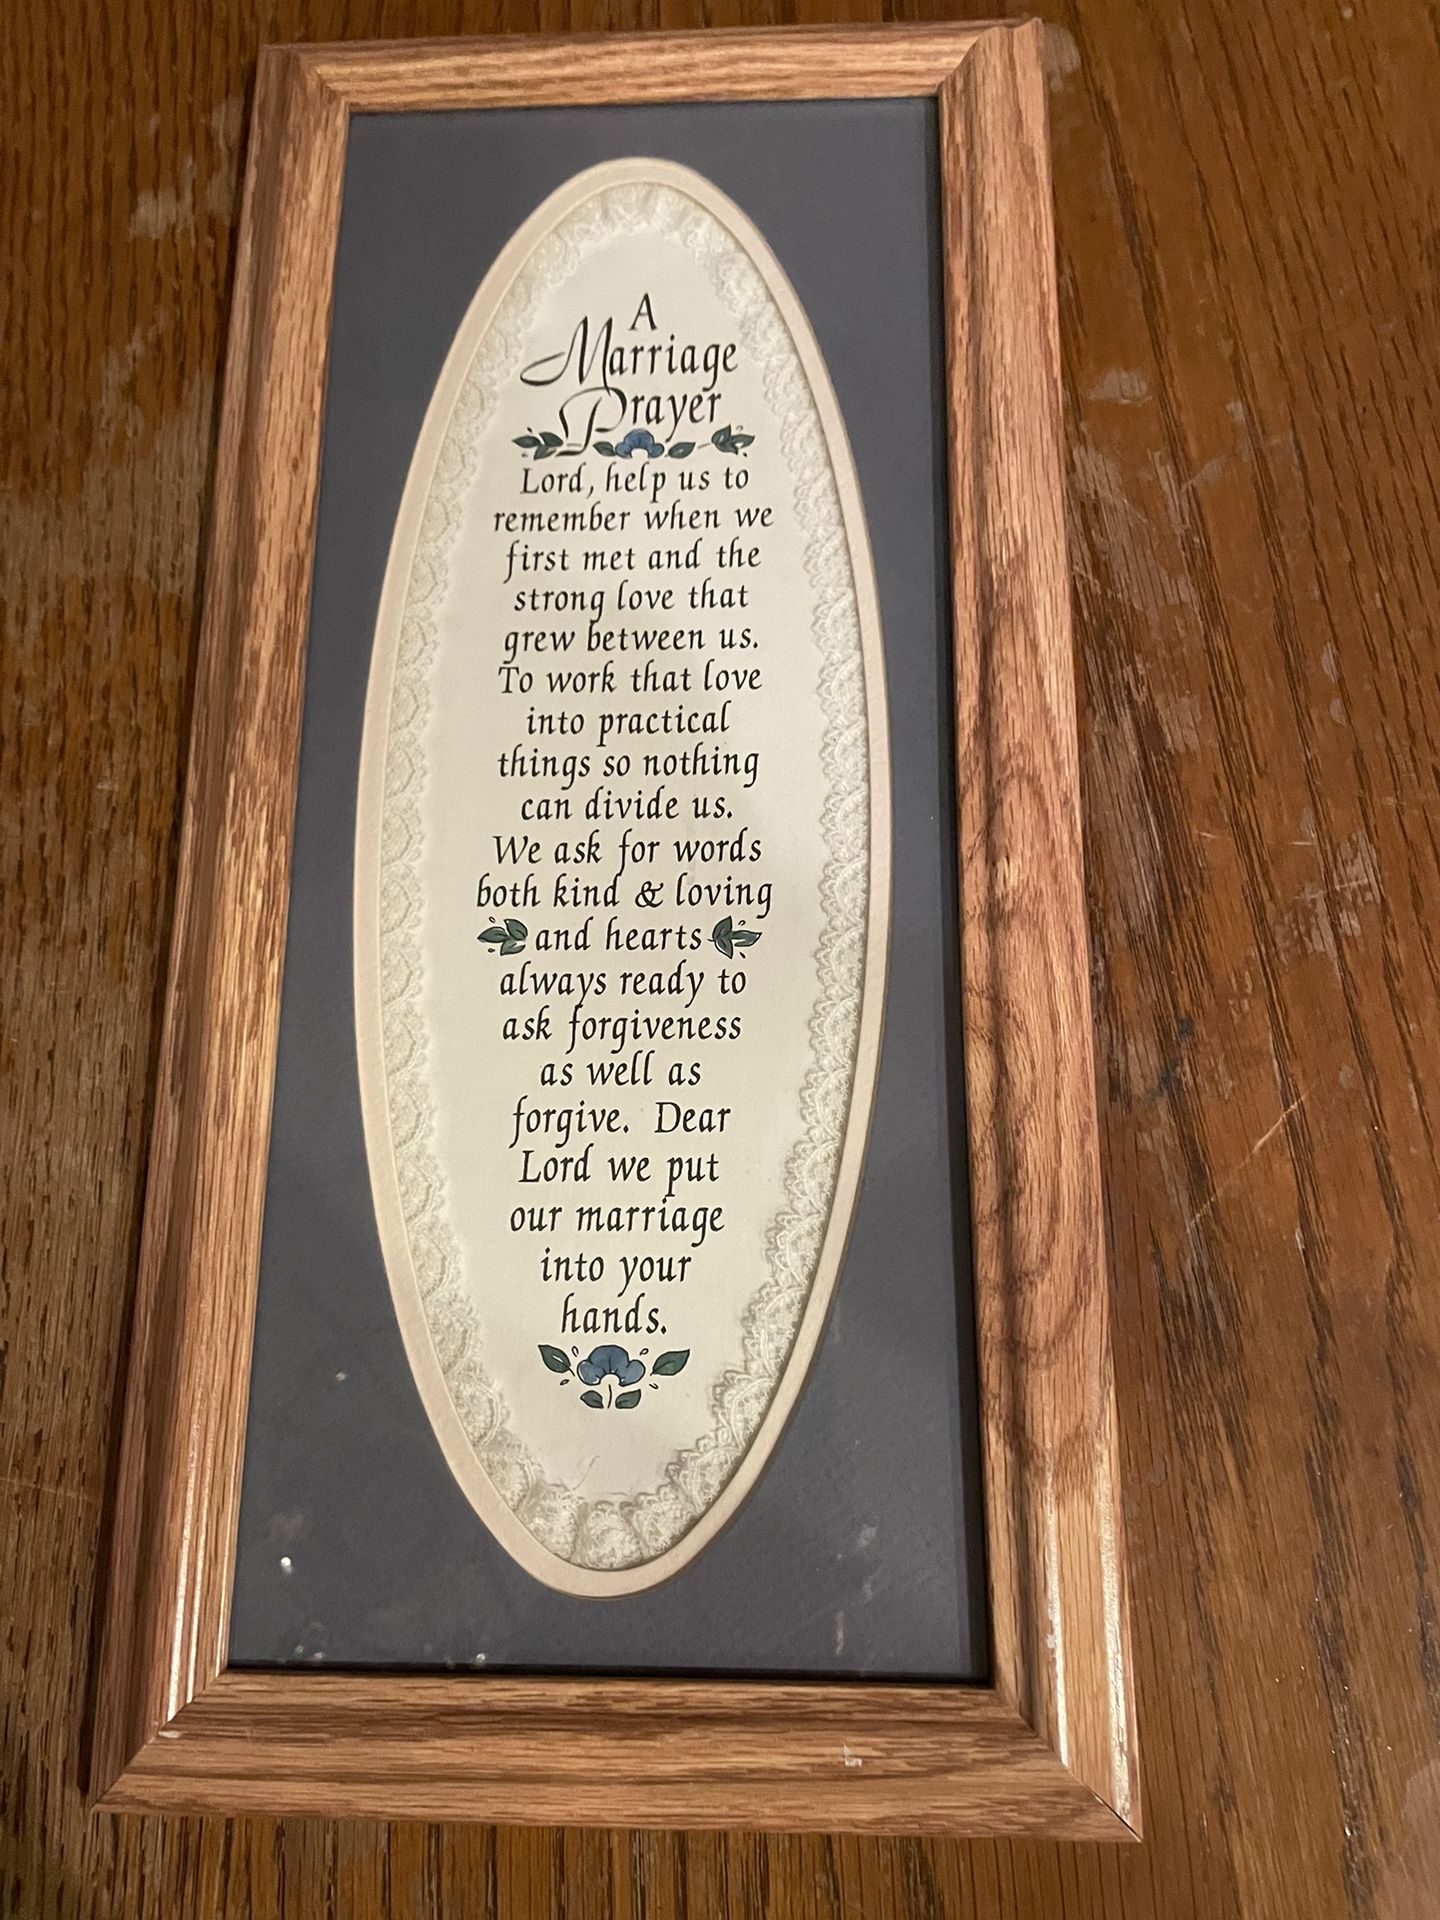 A
Marriage
Prayer
Lord, help us to
remember when we
first met and the
strong love that
grew between us.
To work that love
into practical
things so nothing
can divide us.
We ask for words
both kind & loving
and hearts
always ready to
ask forgiveness
as well as
forgive. Dear
Lord we put
our marriage
into your
hands.